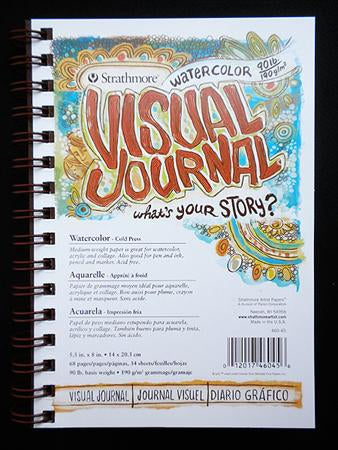 Strathmore
WATERCOLOR
90lb.
190g/m²
VISUAL
JOURNAL
what's YOUR STORY?
Watercolor - Cold Press
Medium-weight paper is great for watercolor,
acrylic and collage. Also good for pen and ink,
pencil and marker. Acid free.
Aquarelle - Apprêt à froid
Papier de grammage moyen idéal pour aquarelle,
acrylique et collage. Bon aussi pour plume, crayon
à mine et marqueur. Sans acide.
Acuarela - Impresión fría
Papel de peso mediano estupendo para acuarela,
acrílico y collage. También bueno para pluma y tinta,
lápiz y marcadores. Sin ácido.
5.5 in. x 8 in. • 14 x 20.3 cm
68 pages/pages/páginas, 34 sheets/feuilles/hojas
90 lb. basis weight • 190 g/m² grammage/gramaje
Strathmore Artist Papers™
A Division of Pacon Corporation
Neenah, WI 54956
www.strathmoreartist.com
Made in the U.S.A.
460-45
0 12017 46045 6
VISUAL JOURNAL | JOURNAL VISUEL | DIARIO GRÁFICO